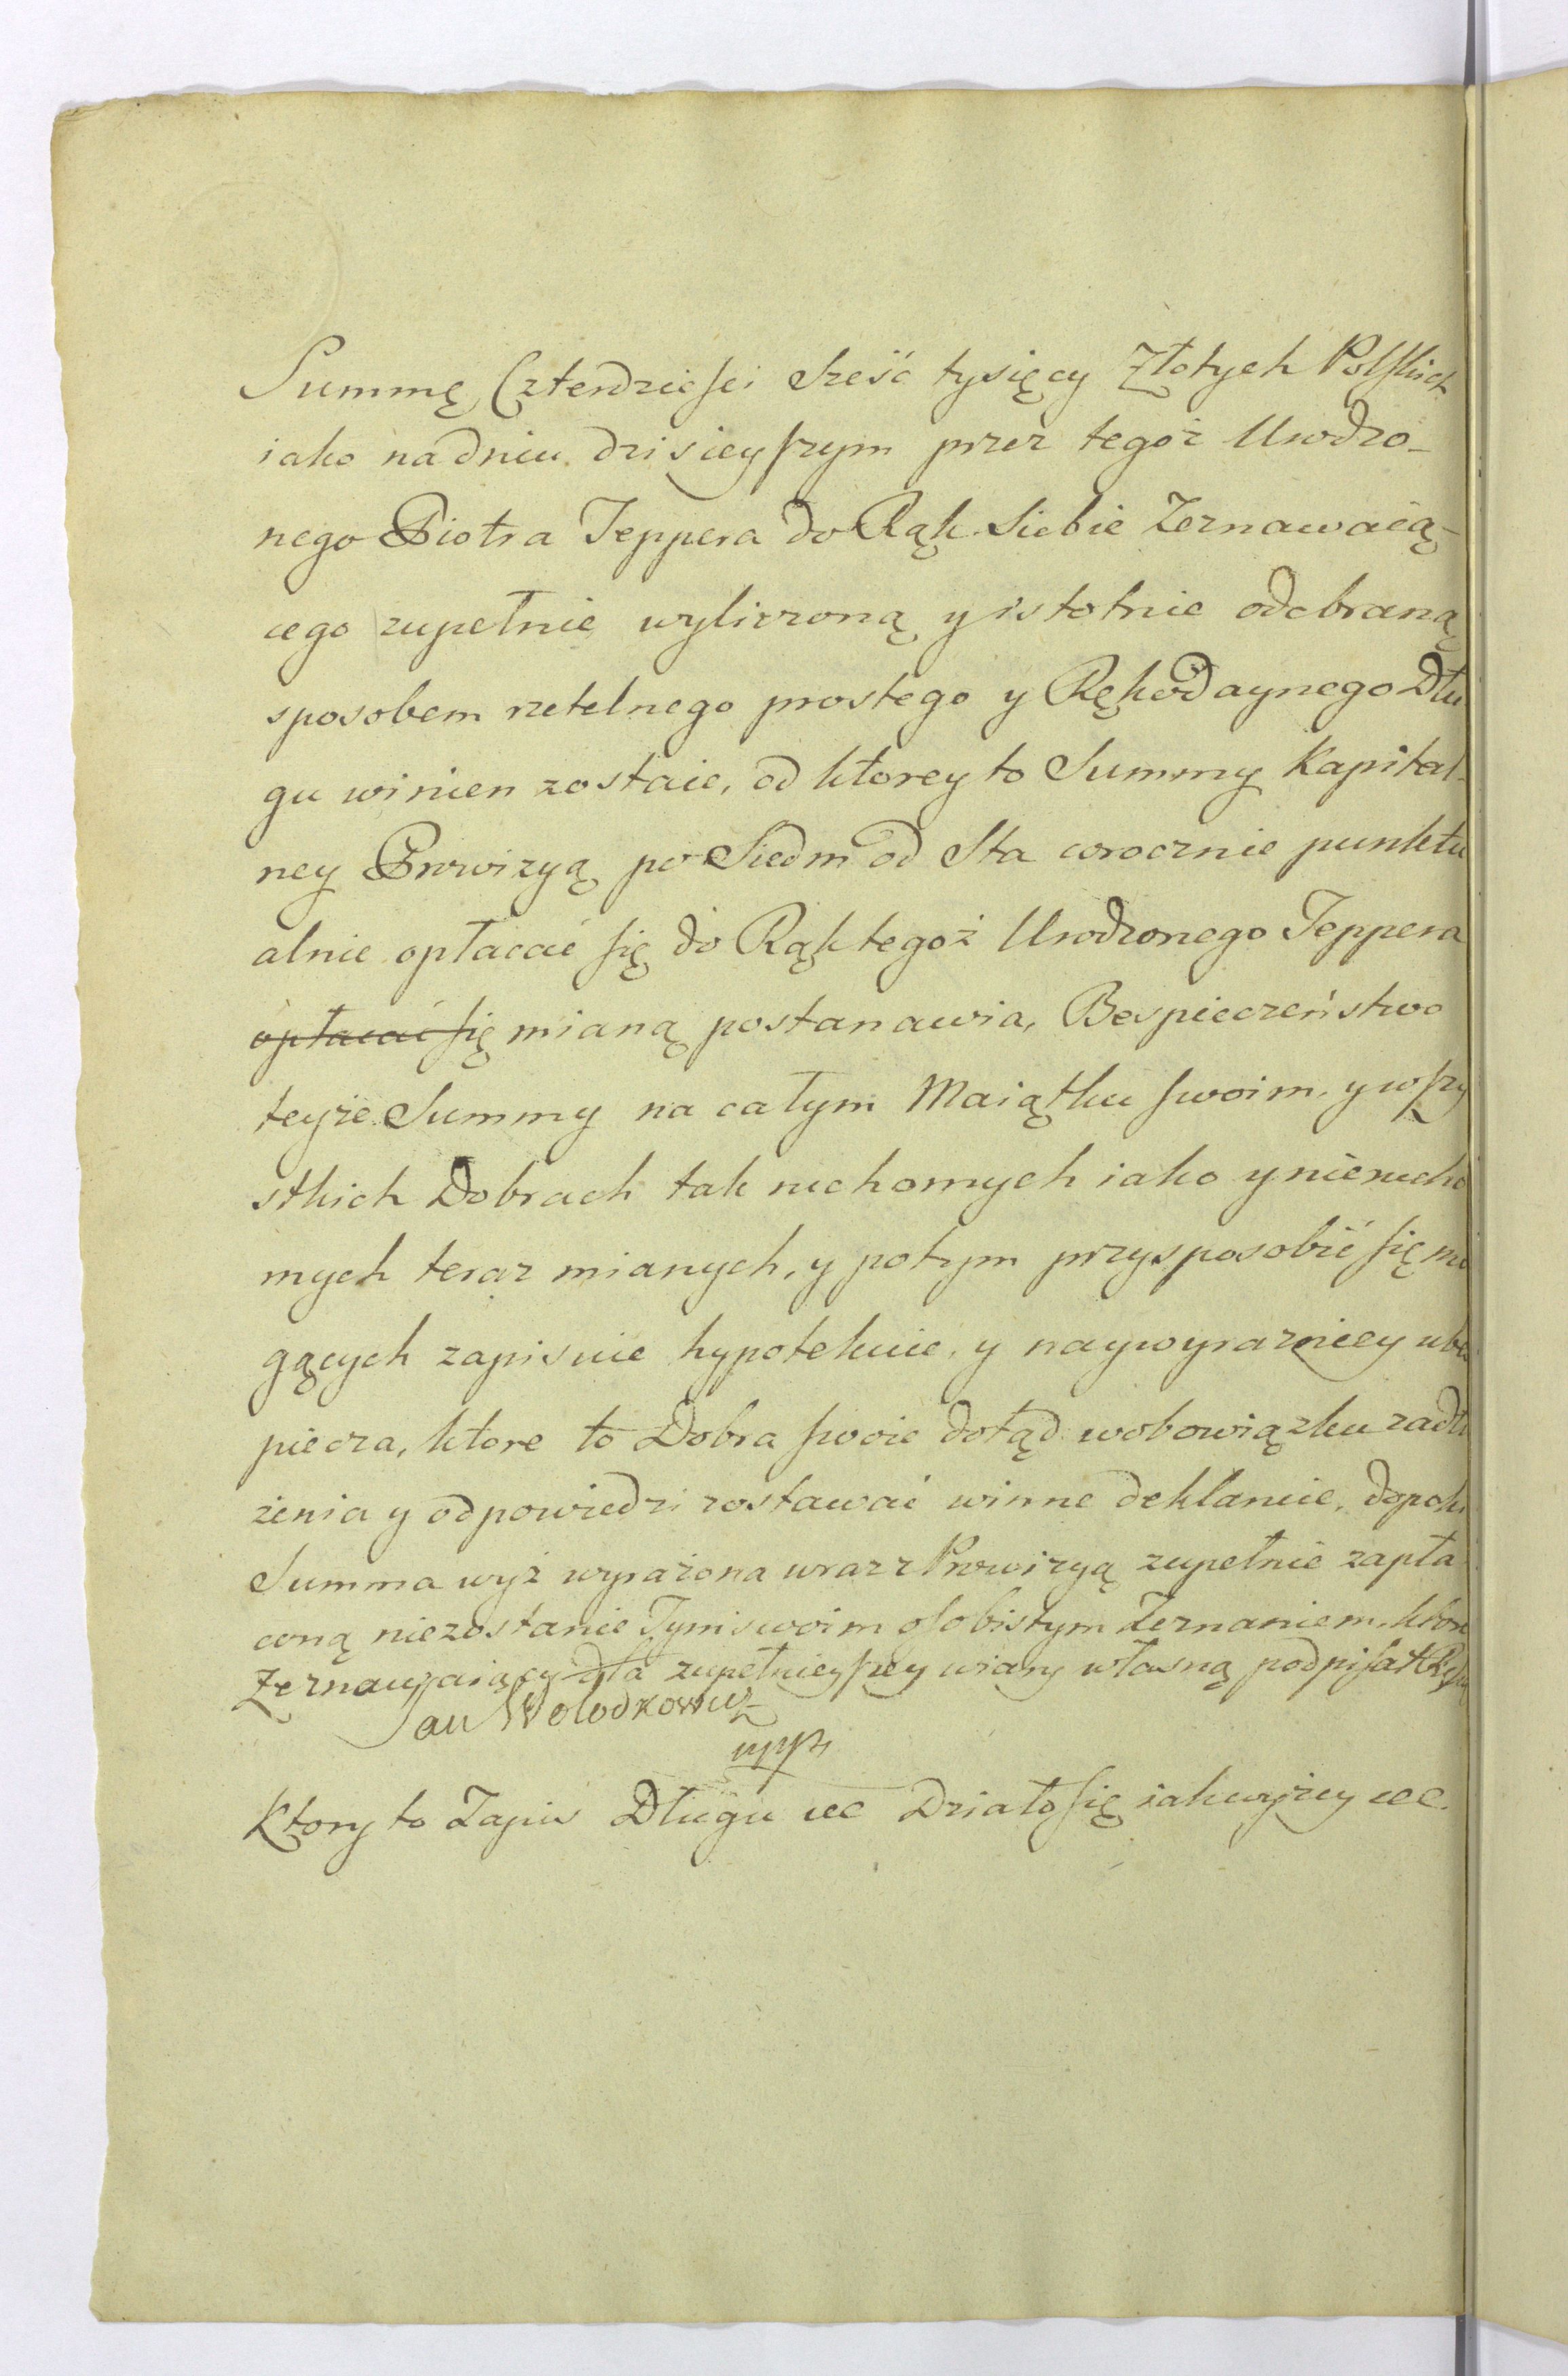 Summę Czterdzieści Sześć tysięcy Złotych Polskich
iako na dniu dzisieyszym przez tegoż Urodzo-
nego Piotra Teppera do Rąk Siebie Zeznawaią-
cego zupełnie wyliczoną y istotnie odebraną
sposobem rzetelnego prostego y Rękodaynego Dłu
gu winien zostaie, od ktorey to Summy Kapital-
ney Prowizyą po Siedm od Sta corocznie punktu
alnie opłacać się do Rąk tegoż Urodzonego Teppera
opłacać się mianą postanawia, Bespieczeństwo
teyże Summy na całym Maiątku swoim, y wszy
stkich Dobrach tak ruchomych iako y nierucho
mych teraz mianych, y potym przysposobić się mo
gących zapisuie hypotekuie, y naywyrazniey ube
piecza, ktore to Dobra swoie dotąd w obowiązku zadłu
żenia y odpowiedzi zostawać winne deklaruie, dopoki
Summa wyż wyrażona wraz z Prowizyą zupełnie zapła
coną niezostanie Tym swoim osobistym Zeznaniem, ktore
Zeznawaiący dla zupełnieyszey wiary własną podpisał Ręką
Jan Wołodkowicz
mpp
Ktory to Zapis Długu etc Działo się iak wyżey etc.